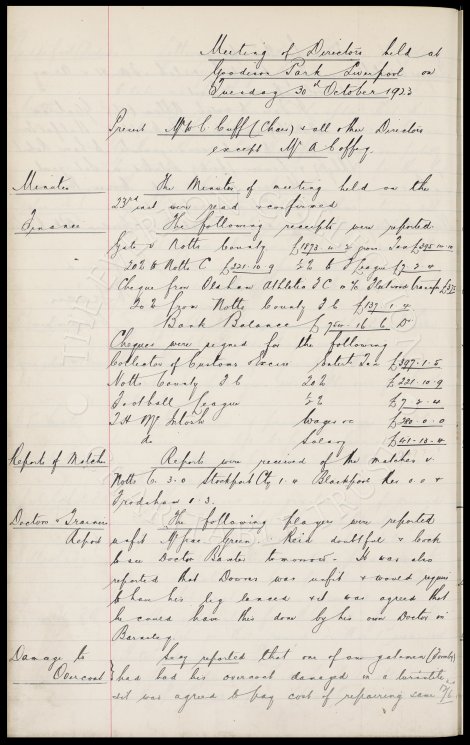 Meeting of Directors held at
Goodison Park Liverpool on
Tuesday 30th October 1923
Present Mr W C Cuff (Chair) & all other Directors
except Mr A Coffey.
Minutes The Minutes of meeting held on the
23rd inst were read & confirmed
Finance The following receipts were reported.
Gate v Notts County £1873. 4. 2 gross Tax £395
20% to Notts C £221.10.9 ½% to F League £7.2.4
Cheque from Oldham Athletic F C a/c transfer
20% from Notts County F C £137.1.4.
Bank Balance £ 6 Dr
Cheques were signed for the following
Collector of Customs & Excise Entert. Tax £397.1.5
Notts County F C 20% £221.10.9
Football League ½% £7.2.4
T H McIntosh Wages &c £280.0.0
do Salary £41.13.4
Reports of Matches Reports were received of the matches v.
Notts C. 3.0 Stockport Cty 1.4 Blackpool Res 0.0 &
Frodsham 1.3.
Doctors & Trainers The following players were reported
Report unfit Green. Reid doubtful &
to see Doctor Baxter tomorrow. It was also
reported that Downs was unfit & would require
to have his leg lanced & it was agreed that
he could have this done by his own Doctor in
Barnsley
Damage to Secy reported that one of our gatemen
Overcoat had had his overcoat damaged in a turnstile
& it was agreed to pay cost of repairing same